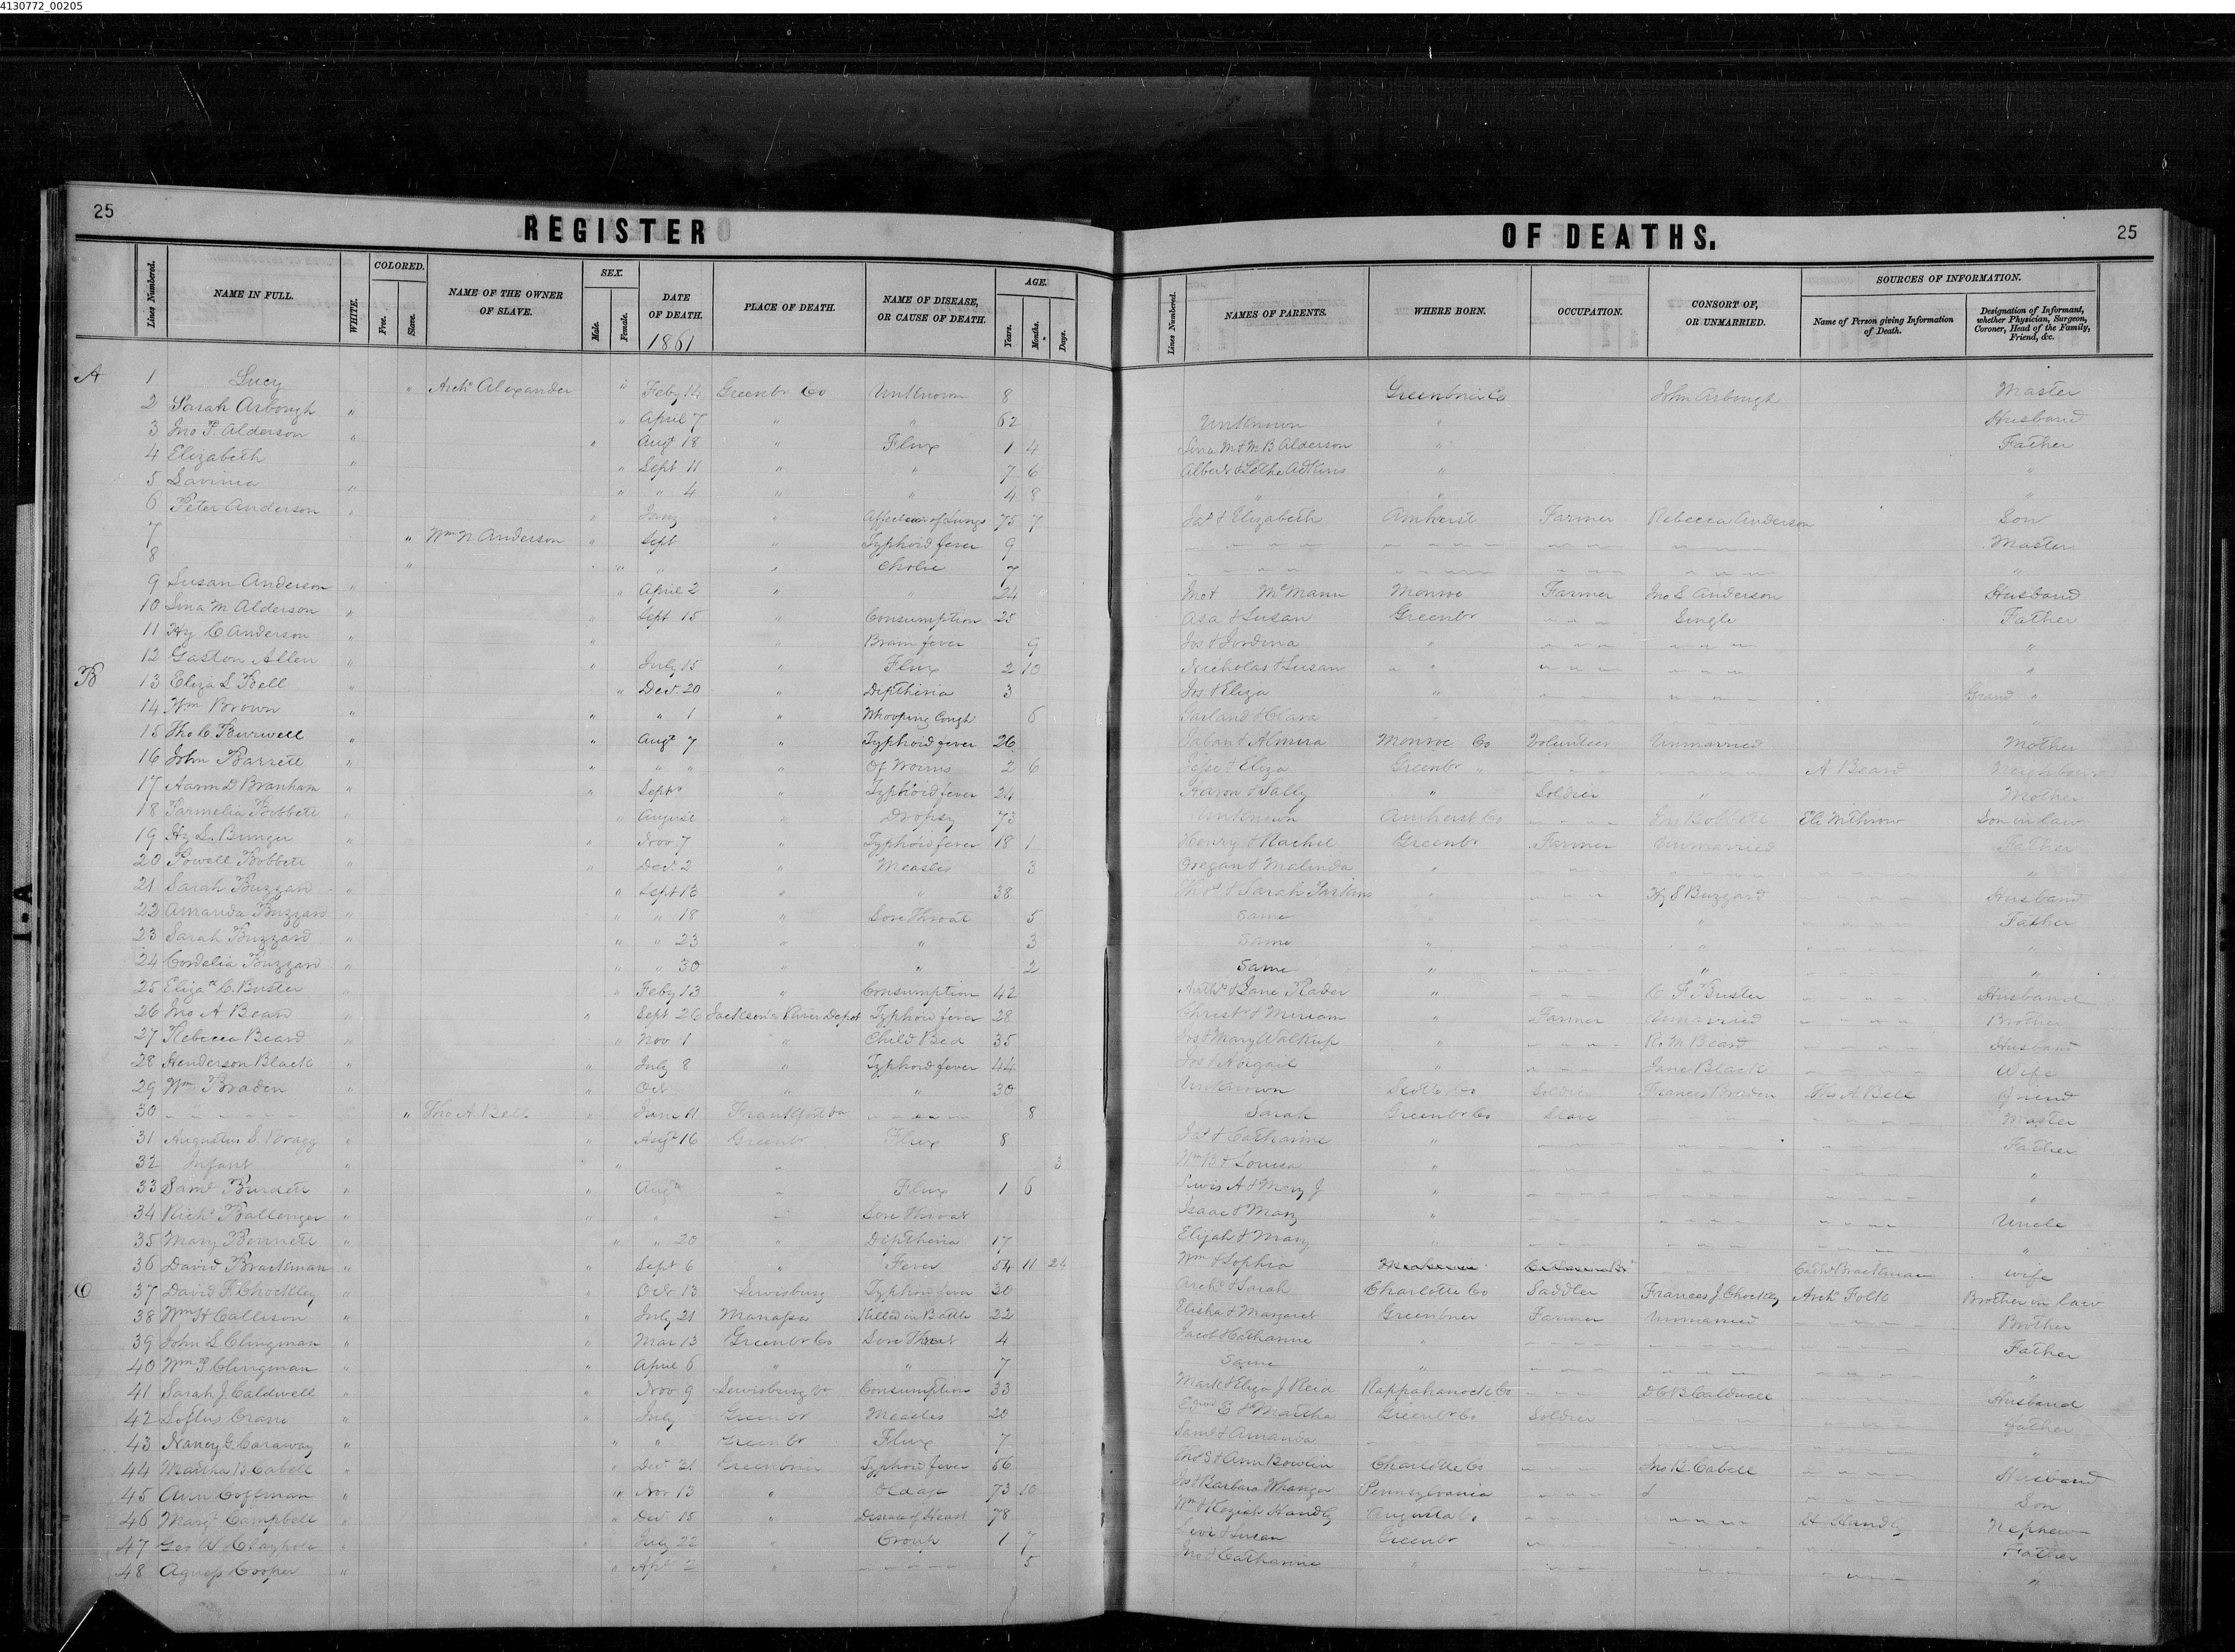 4130772_00205
25
REGISTER
OF DEATHS.
25
Lines Numbered. NAME IN FULL. WHITE. COLORED. Free. Slave. NAME OF THE OWNER OF SLAVE. SEX. Male. Female. DATE OF DEATH. 1861 PLACE OF DEATH. NAME OF DISEASE, OR CAUSE OF DEATH. AGE. Years. Months. Days. Lines Numbered. NAMES OF PARENTS. WHERE BORN. OCCUPATION. CONSORT OF, OR UNMARRIED. SOURCES OF INFORMATION. Name of Person giving Information of Death. Designation of Informant, whether Physician, Surgeon, Coroner, Head of the Family, Friend, &c.
A 1 Lucy " Archd Alexander " Feby 14 Greenbr Co Unknown 8 Greenbrier Co Master
2 Sarah Arbough " " April 7 " " 62 Unknown " John Arbough Husband
3 Jno P. Alderson " " Augt 18 " Flux 1 4 Lina M & M B Alderson " Father
4 Elizabeth " " Sept 11 " " 7 6 Albert & Lethe Adkins " "
5 Lavinia " " " 4 " " 4 8 " " "
6 Peter Anderson " " Jany " Affection of Lungs 75 7 Jas & Elizabeth Amherst Farmer Rebecca Anderson Son
7 " Wm N Anderson " Sept " Typhoid fever 9 Master
8 " " " " Cholic 7 "
9 Susan Anderson " " April 2 " " 24 Jno & McMann Monroe Farmer Jno S Anderson Husband
10 Lina M Alderson " " Sept 15 " Consumption 25 Asa & Susan Greenbr Single Father
11 Hy C Anderson " " " Brain fever 9 Jos & " "
12 Gaston Allen " " July 15 " Flux 2 10 Nicholas & Susan " "
B 13 Eliza S Bell " " Decr. 20 " Diptheria 3 Jos & Eliza " Grand "
14 Wm Brown " " " 1 " Whooping Cough 6 Garland & Clara " "
15 Tho C Burwell " " Augt 7 " Typhoid fever 26 & Almira Monroe Co Volunteer Unmarried Mother
16 John Barrett " " " " " Of Worms 2 6 Jesse & Eliza Greenbr " A Beard Neighbour
17 Aaron D Branham " " Septr " Typhoid fever 24 Aaron & Sally " Soldier " Mother
18 Parmelia Bobbett " " August " Dropsy 73 Unknown Amherst Co Jno Bobbett Eli McThrow Son in law
19 Hy L. Bunger " " Nov 7 " Typhoid fever 18 1 Henry & Rachel Greenbr Farmer Unmarried Father
20 Powell Bobbett " " Decr. 2 " Measles 3 Oregan & Malinda " "
21 Sarah Buzzard " " Sept 13 " " 38 Thos & Sarah Hy S Buzzard Husband
22 Amanda Buzzard " " " 18 " Sore Throat 5 Same Father
23 Sarah Buzzard " " " 23 " " 3 Same " " "
24 Cordelia Buzzard " " " 30 " " 2 Same " " "
25 Elizath C. Buster " " Feby 13 Consumption 42 & Jane Rader " C F Buster Husband
26 Jno A Beard " " Sept 26 Jackson's River Depot Typhoid fever 28 Christr & Miriam " Farmer Unmarried Brother
27 Rebecca Beard " " Nov 1 " Child Bed 35 Jos & Mary Walkup " R M Beard Husband
28 Henderson Black " " July 8 Typhoid fever 44 Jos & Abigail " Jane Black Wife
29 Wm Braden " " Oct " " 30 Unknown Scott Co Soldier Frances Braden Tho A Bell Friend
30 " Tho A. Bell " June 11 Frankford Va 8 Sarah Greenbr Co Slave Master
31 Augustus S. Bragg " " Augt 16 Greenbr Flux 8 Jas & Catharine " Father
32 Infant " " " 3 Wm B & Louisa " "
33 Saml Burdett " " Augt Flux 1 6 Lewis A & Mary J " "
34 Richd Ballenger " " " Sore Throat Isaac & Mary " Uncle
35 Mary Bennett " " " 20 " Diptheria 17 Elijah & Mary " "
36 David Brackman " " Sept 6 " Fever 54 11 24 Wm & Sophia Brackman Wife
C 37 David F. Chockley " " Oct. 13 Lewisburg Typhoid fever 30 Archd & Sarah Charlotte Co Saddler Frances J Chockley Archd Folk Brother in law
38 Wm H Callison " " July 21 Manassa Killed in Battle 22 Elisha & Margaret Greenbrier Farmer Unmarried Brother
39 John L Clingman " " Mar 13 Greenbr Co Sore Throat 4 Jacob & Catharine " Father
40 Wm P. Clingman " " April 6 " " 7 Same " "
41 Sarah J. Caldwell " " Nov 9 Lewisburg Va Consumption 33 Mark & Eliza J Reid Rappahanock Co D C B Caldwell Husband
42 Loftus Crane " " July Greenbr Measles 20 Edwd E & Martha Greenbr Co Soldier Father
43 Nancy G. Caraway " " " Greenbr Flux 7 Saml & Amanda "
44 Martha B. Cabell " " Decr 21 Greenbrier Typhoid fever 56 Chas S & Ann Bowlin Charlotte Co Jno B. Cabell Husband
45 Ann Coffman " " Nov 13 " Old age 73 10 Jos & Barbara Pennsylvania Son
46 Margt Campbell " " Decr. 15 " Disease of Heart 78 Wm & Keziah Handly Augusta Co Handly Nephew
47 Geo W Claypole " " July 22 " Croup 1 7 Levi & Susan Greenbr Father
48 Agness Cooper " " Apl 2 " 5 Jno & Catharine " "